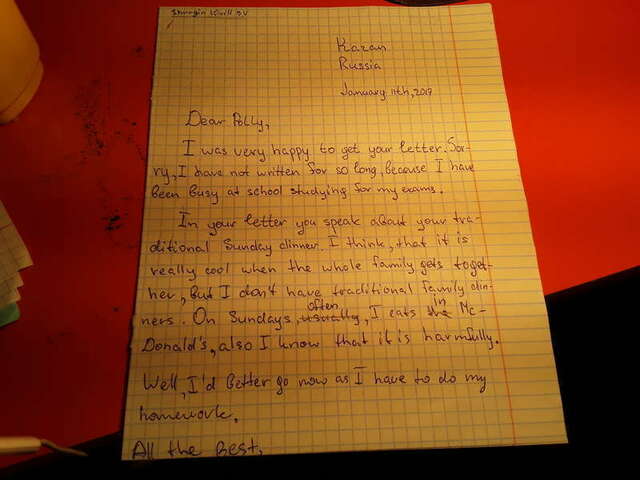 Kazan
Russia
January 11th, 2017
Dear Polly,
I was very happy to get your letter. Sor-
ry, I have not written for so long, because I have
been busy at school studying for my exams.
In your letter you speak about your tra-
ditional Sunday dinner. I think, that it is
really cool when the whole family gets toget-
her, But I don't have traditional family din-
ners. On Sundays, usually often, I eats the in Mc-
Donald's, also I know that it is harmfully.
Well, I'd better go now as I have to do my
homework.
All the Best,